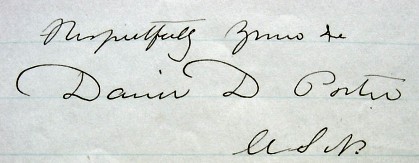 Respectfully Yours &c
David D Porter
U S N.